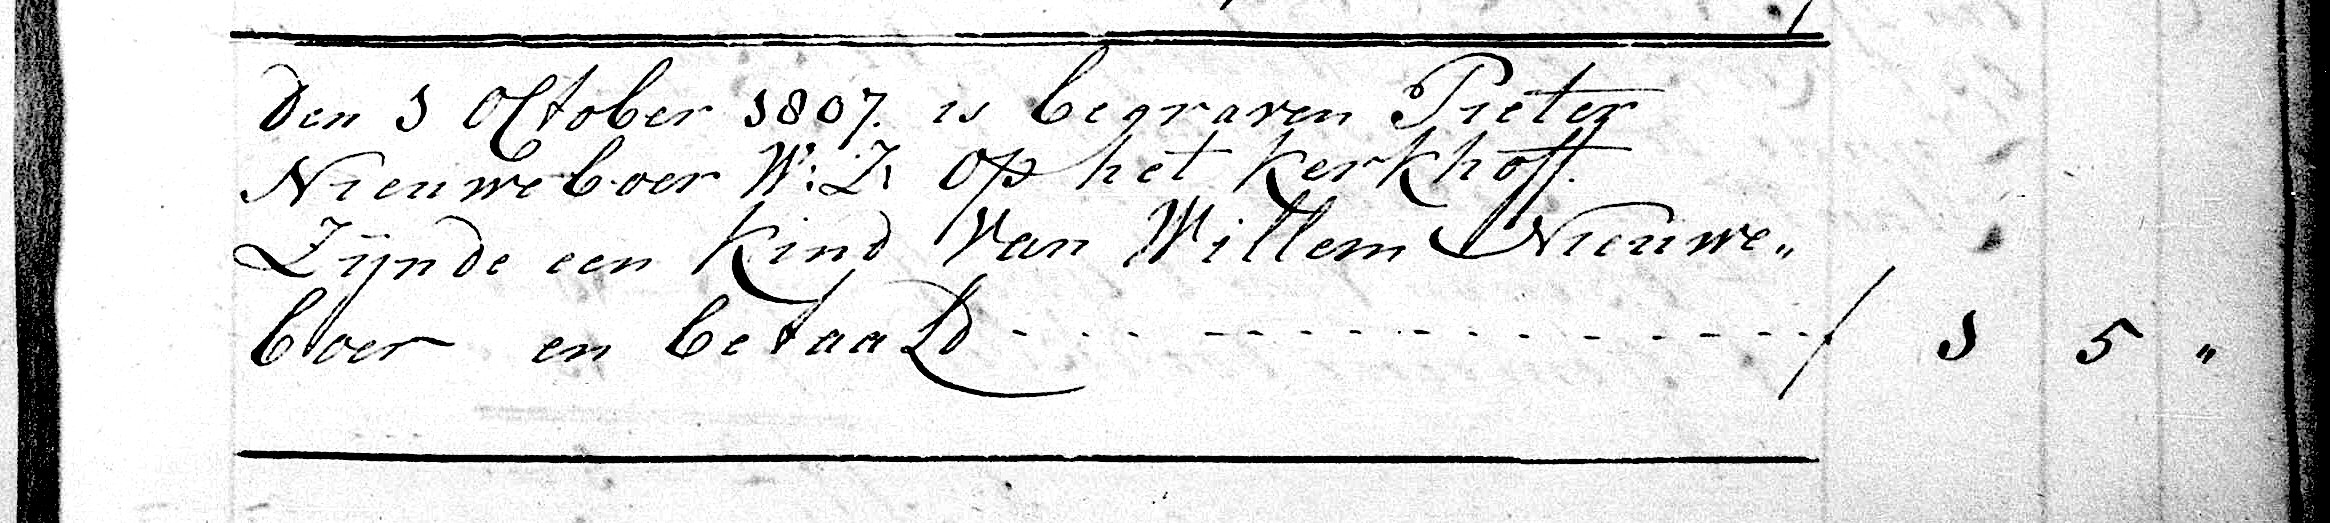 Den 1 October 1807. is begraven Pieter
Nieuweboer W:Z: op het Kerkhoff.
Zijnde een Kind Van Willem Nieuwe„
boer en betaald - - - - - - - - - - - - - - / 1 5 „